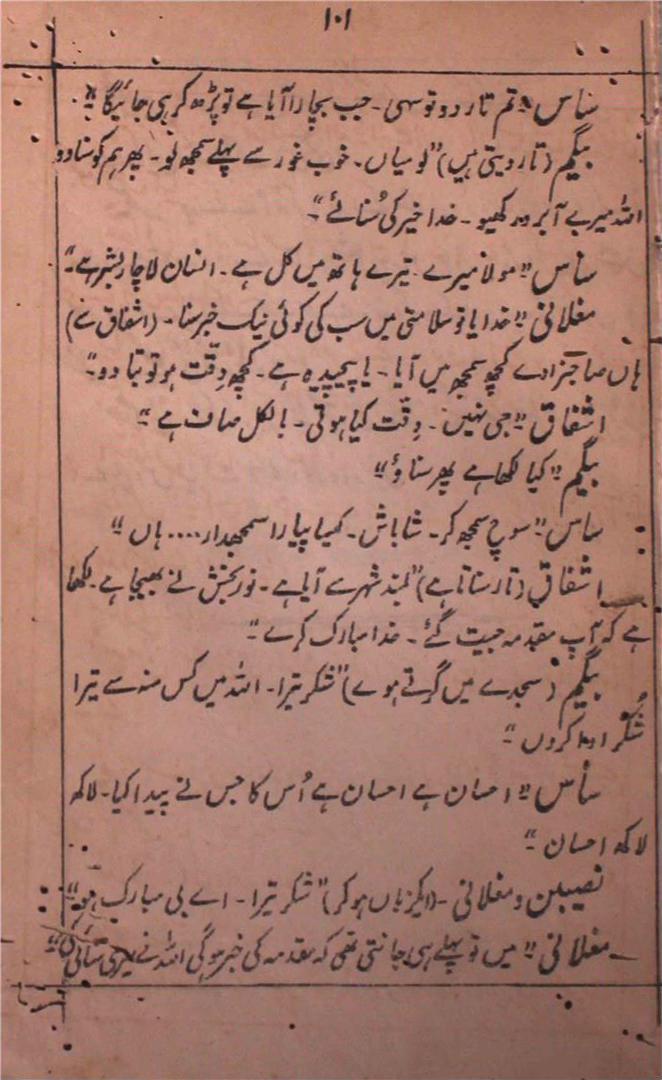 ۱۰۱
ساس "تم تار دو تو سہی۔ جب بچارا آیا ہے تو پڑھ کر ہی جائیگا"۔
بیگم (تار دیتی ہیں) "لو میاں۔ خوب غور سے پہلے سمجھ لو۔ پھر ہم کو سنا دو
اللہ میرے آبرو رکھیو۔ خدا خیر کی سُنائے"
ساس "مولا میرے۔ تیرے ہاتھ میں کل ہے۔ انسان لاچار بشر ہے"
مغلانی "خدایا تو سلامتی میں سب کی کوئی نیک خبر سنا۔ (اشفاق نے)
ہاں صاحبزادے کچھ سمجھ میں آیا۔ یا پیچیدہ ہے۔ کچھ دِقّت ہو تو بتا دو۔"
اشفاق "جی نہیں۔ دِقّت کیا ہوتی۔ بالکل صاف ہے"
بیگم "کیا لکھا ہے پھر سناؤ"
ساس "سوچ سمجھ کر۔ شاباش۔ کیسا پیارا سمجھدار.... ہاں"
اشفاق (تار سناتا ہے) "بلند شہر سے آیا ہے۔ نور بخش نے بھیجا ہے۔ لکھا
ہے کہ آپ مقدمہ جیت گئے۔ خدا مبارک کرے"
بیگم (سجدے میں گرتے ہوے) "شکر تیرا۔ اللہ میں کس منہ سے تیرا
شُکر ادا کروں"
ساس "احسان ہے احسان ہے اُس کا جس نے پیدا کیا۔ لاکھ
لاکھ احسان"
نصیبن و مغلانی۔ (ایکزباں ہو کر) "شکر تیرا۔ اے بی مبارک ہو"
مغلانی "میں تو پہلے ہی جانتی تھی کہ مقدمہ کی خبر ہوگی اللہ نے میری سُنائی"